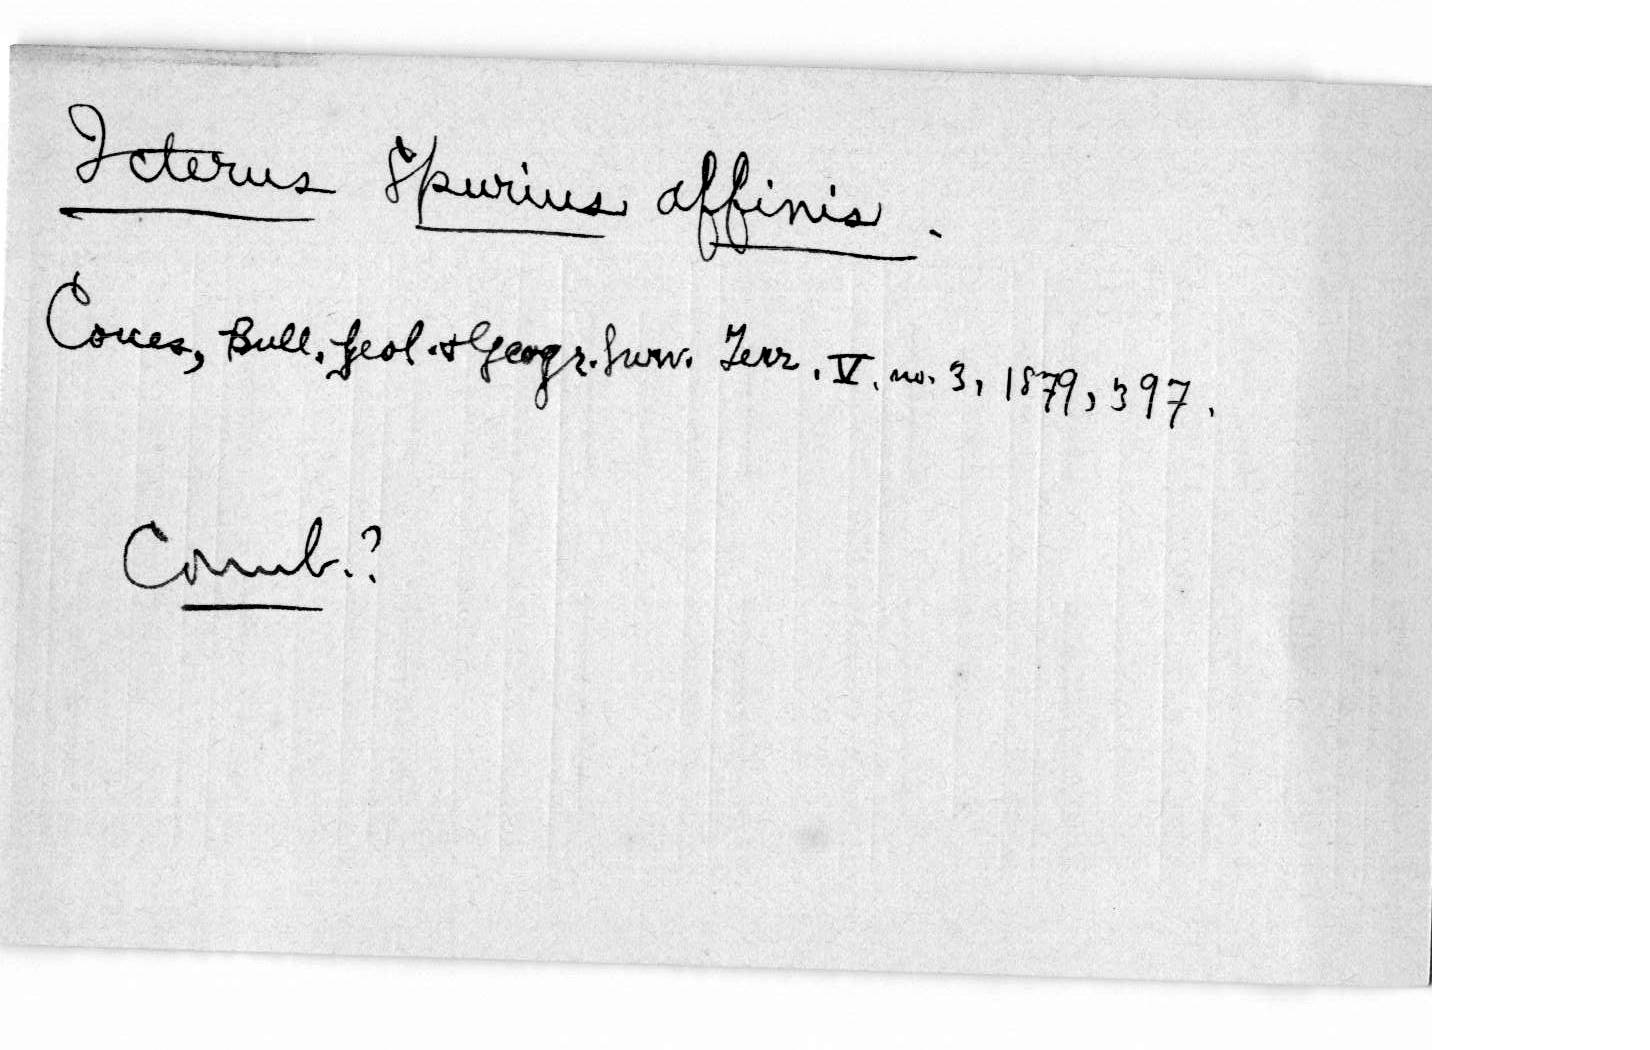 Icterus Spurius affinis.
Coues, Bull. Geol. & Geogr. Surv. Terr. V. no. 3, 1879, 397.
Comb.?